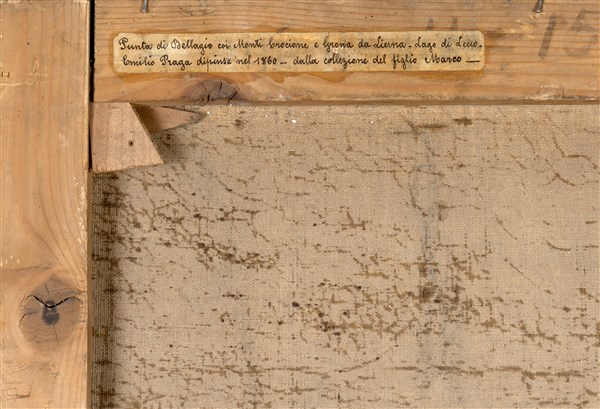 Punta di Bellagio coi Monti Crocione e Grona da Lierna - Lago di Lecco.
Emilio Praga dipinse nel 1860 - dalla collezione del figlio Marco -